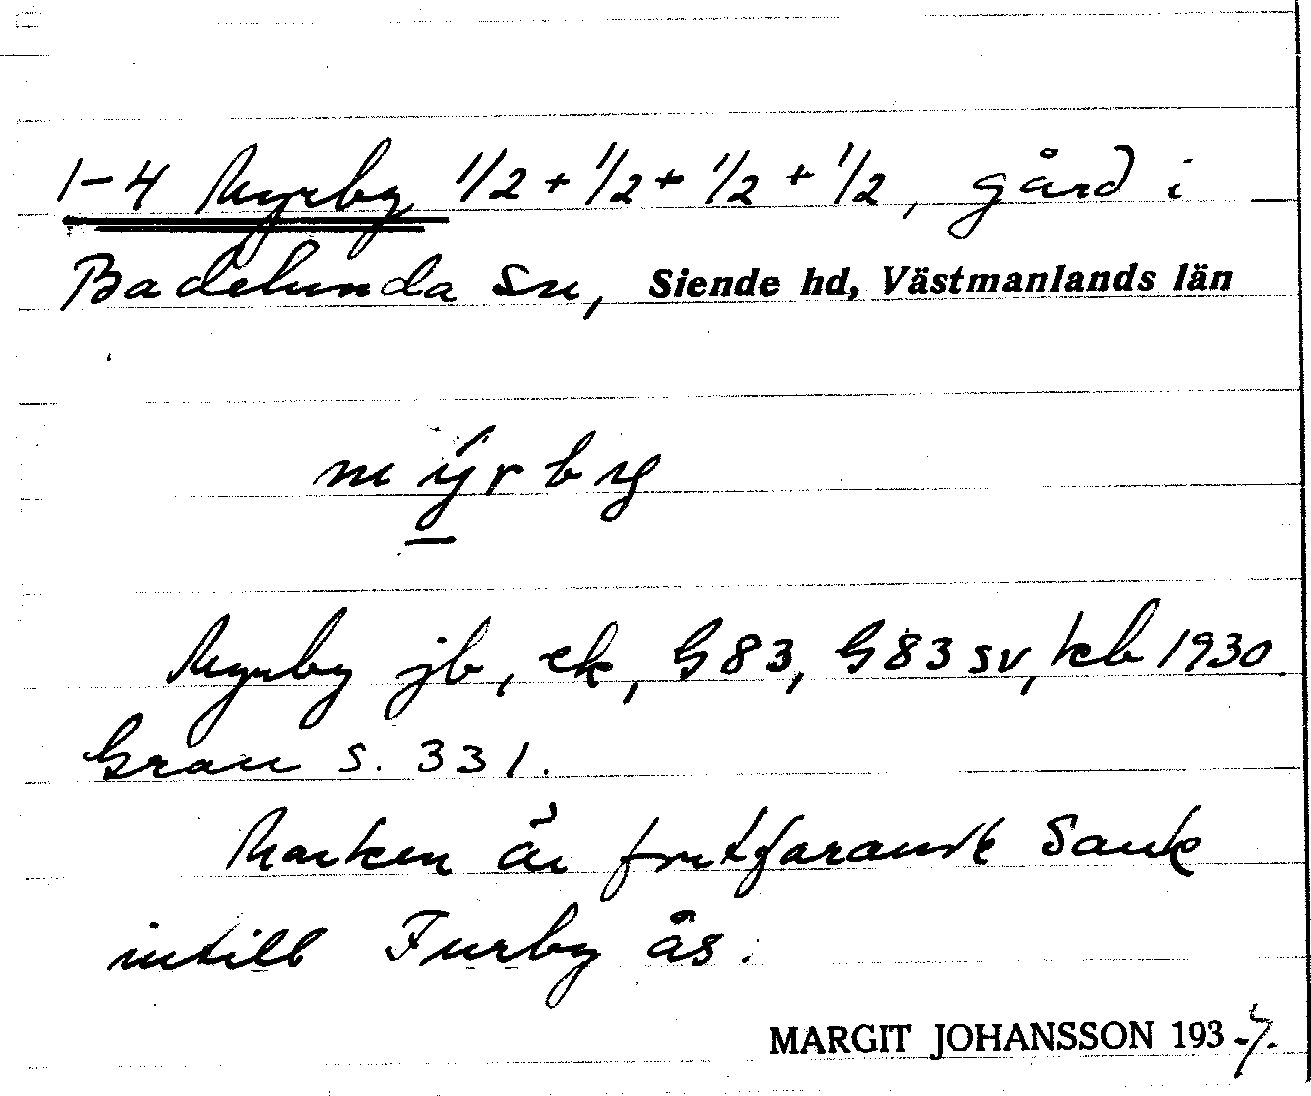 1-4 Myrby 1/2 + 1/2 + 1/2 + 1/2, gård i
Badelunda sn, Siende hd, Västmanlands län
mýrby
Myrby jb, ek, G 83, G 83 sv, kb 1930
Grau s. 331.
Marken är fortfarande sank
intill Furby ås.
MARGIT JOHANSSON 1937.